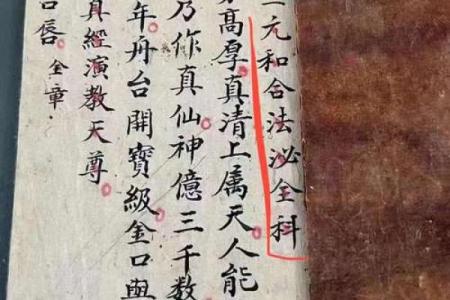 元和合法泌全科
高厚真清上属天人能
乃作真仙神億三千数
年舟台開寶級金口與
真經演教天尊
唇 金章